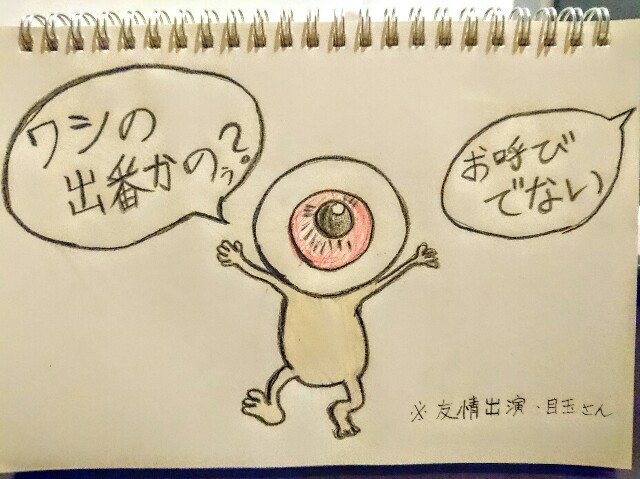 ワシの
出番かのぅ?
お呼び
でない
※友情出演・目玉さん